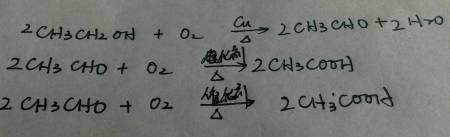 2CH3CH2OH + O2 Cu △ → 2CH3CHO + 2H2O
2CH3CHO + O2 催化剂 △ → 2CH3COOH
2CH3CHO + O2 催化剂 △ → 2CH3COOH